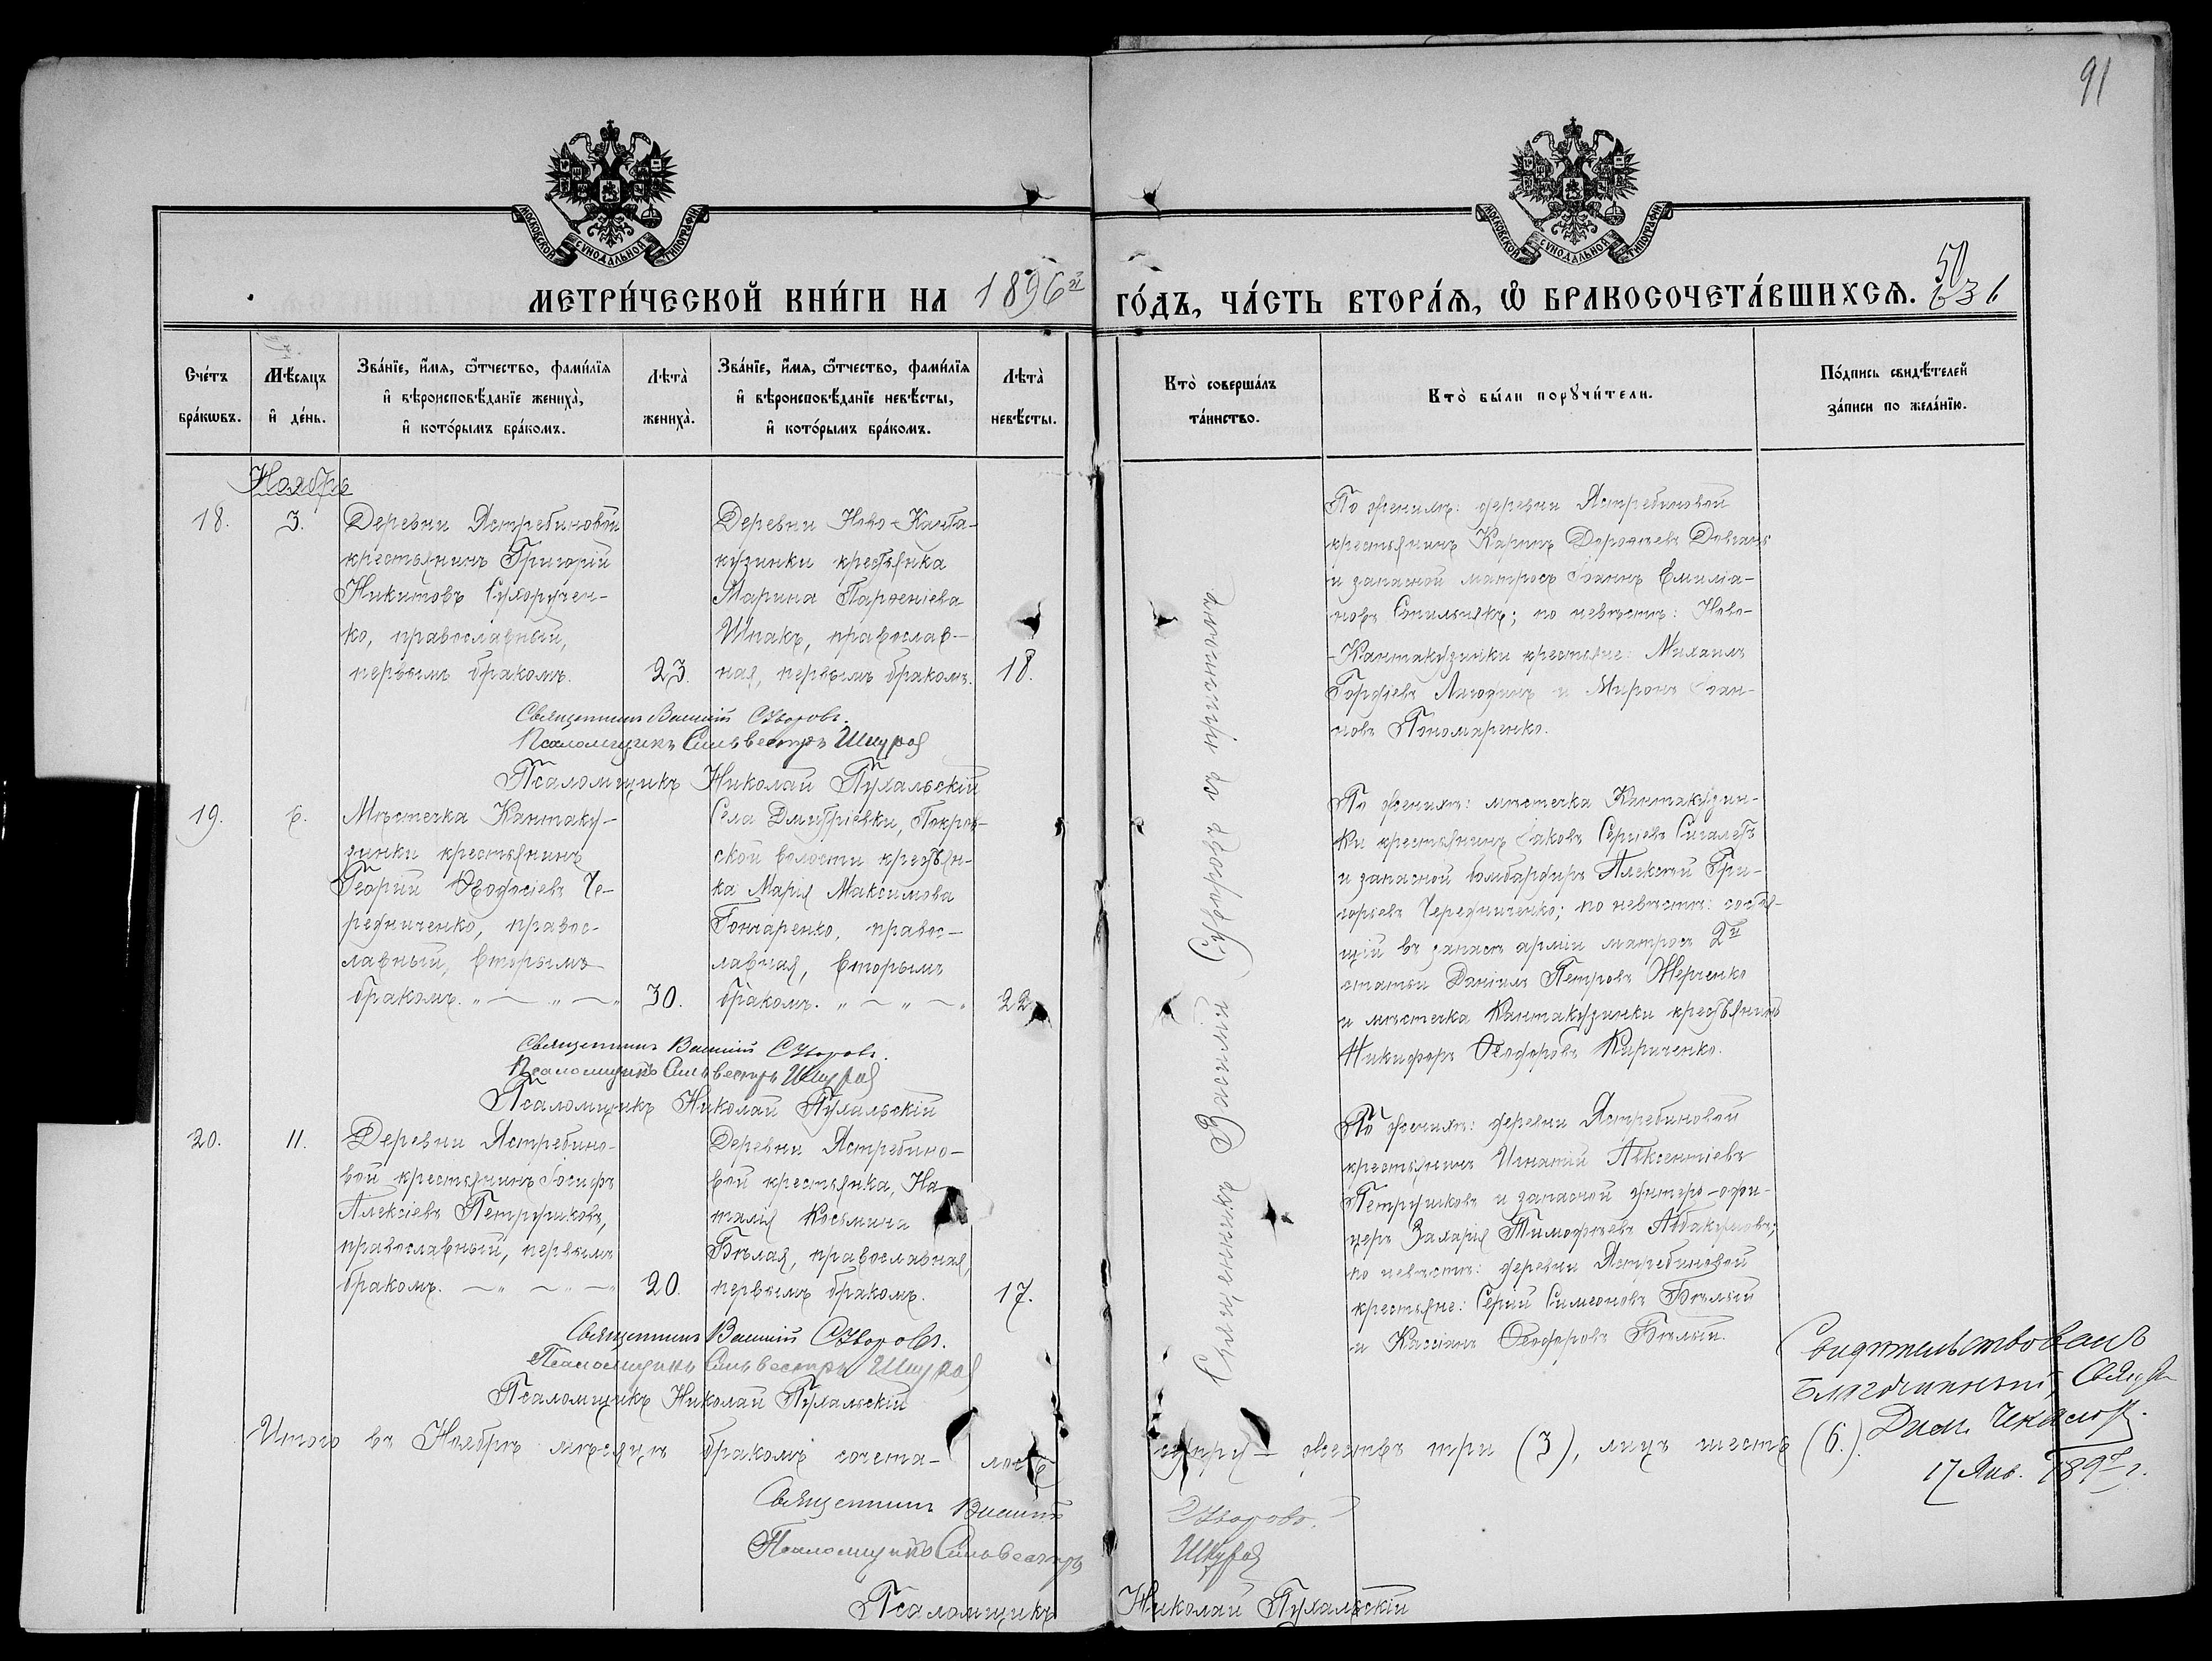 91
МОСКОВСКОЙ СѴНОДАЛЬНОЙ ТИПОГРАФІИ
МОСКОВСКОЙ СѴНОДАЛЬНОЙ ТИПОГРАФІИ
МЕТРИ́ЧЕСКОЙ КНИ́ГИ НА 1896й ГО́ДЪ, ЧА́СТЬ ВТОРА́Ѧ, Ѡ҆ БРАКОСОЧЕТА́ВШИХСѦ.
Сче́тъ
бра́кѡвъ.
Мѣ́сяцъ
и҆ де́нь.
Зва́нїе, и҆́мѧ, ѻ҆́тчество, фами́лїѧ
и҆ вѣроисповѣ́данїе жениха̀,
и҆ кото́рымъ бра́комъ.
Лѣта̀
жениха̀.
Зва́нїе, и҆́мѧ, ѻ҆́тчество, фами́лїѧ
и҆ вѣроисповѣ́данїе невѣ́сты,
и҆ кото́рымъ бра́комъ.
Лѣта̀
невѣ́сты.
Кто̀ соверша́лъ
та́инство.
Кто̀ бы́ли порꙋчи́тели.
По́дпись свидѣ́телей
за́писи по жела́нїю.
Ноябрь
18.
3.
Деревни Ястребиновой
крестьянинъ Григорій
Никитовъ Сухоручен-
ко, православный,
первымъ бракомъ.
23.
Деревни Ново-Канта-
кузинки крестьянка
Марина Парѳеніева
Шпакъ, православ-
ная, первымъ бракомъ.
18.
По женихѣ: деревни Ястребиновой
крестьянинъ Карпъ Дороѳеевъ Довгань
и запасной матросъ Іоаннъ Емиліа-
новъ; по невѣстѣ: Ново-
-Кантакузинки крестьяне: Михаилъ
Гордіевъ и Миронъ Іоан-
новъ Пономаренко.
Священникъ Василій Суворовъ.
Псаломщикъ Сильвестръ Шкура
Псаломщикъ Николай Пухальскій
19.
6.
Мѣстечка Кантаку-
зинки крестьянинъ
Георгій Ѳеодосіевъ Че-
редниченко, правос-
лавный, вторымъ
бракомъ.
30.
Села Дмитріевки, Покров-
ской волости крестьян-
ка Марія Максимова
Гончаренко, правос-
лавная, вторымъ
бракомъ.
22
По женихѣ: мѣстечка Кантакузин-
ки крестьянинъ Іаковъ Сергіевъ Сигалетъ
и запасной бомбардиръ Алексѣй Гри-
горьевъ Чередниченко; по невѣстѣ: состоя-
щій въ запасѣ арміи матросъ 2й
статьи Даніилъ Петровъ Жерченко
и мѣстечка Кантакузинки крестьянинъ
Никифоръ Ѳеодоровъ Кириченко.
Священникъ Василій Суворовъ.
Псаломщикъ Сильвестръ Шкура
Псаломщикъ Николай Пухальскій
20.
11.
Деревни Ястребино-
вой крестьянинъ Іосифъ
Алексіевъ Петрушковъ,
православный, первымъ
бракомъ.
20.
Деревни Ястребино-
вой крестьянка, На-
талія Космина
Бѣлая, православная,
первымъ бракомъ.
17.
По женихѣ: деревни Ястребиновой
крестьянинъ Игнатій Авксентіевъ
Петрушковъ и запасной унтеръ-офи-
церъ Захарія Тимоѳеевъ Аввакумовъ;
по невѣстѣ: деревни Ястребиновой
крестьяне: Сергій Симеоновъ Бѣлый
и Кассіанъ Ѳеодоровъ Бѣлый.
Священникъ Василій Суворовъ.
Псаломщикъ Сильвестръ Шкура
Псаломщикъ Николай Пухальскій
Священникъ Василій Суворовъ съ причтомъ
Итого въ Ноябрѣ мѣсяцѣ бракомъ сочета-лось супружествъ три (3), лицъ шесть (6).
Священникъ Василій Суворовъ.
Псаломщикъ Сильвестръ Шкура
Псаломщикъ Николай Пухальскій
Свидѣтельствовалъ
Благочинный, Священ.
17 Янв. 1897 г.